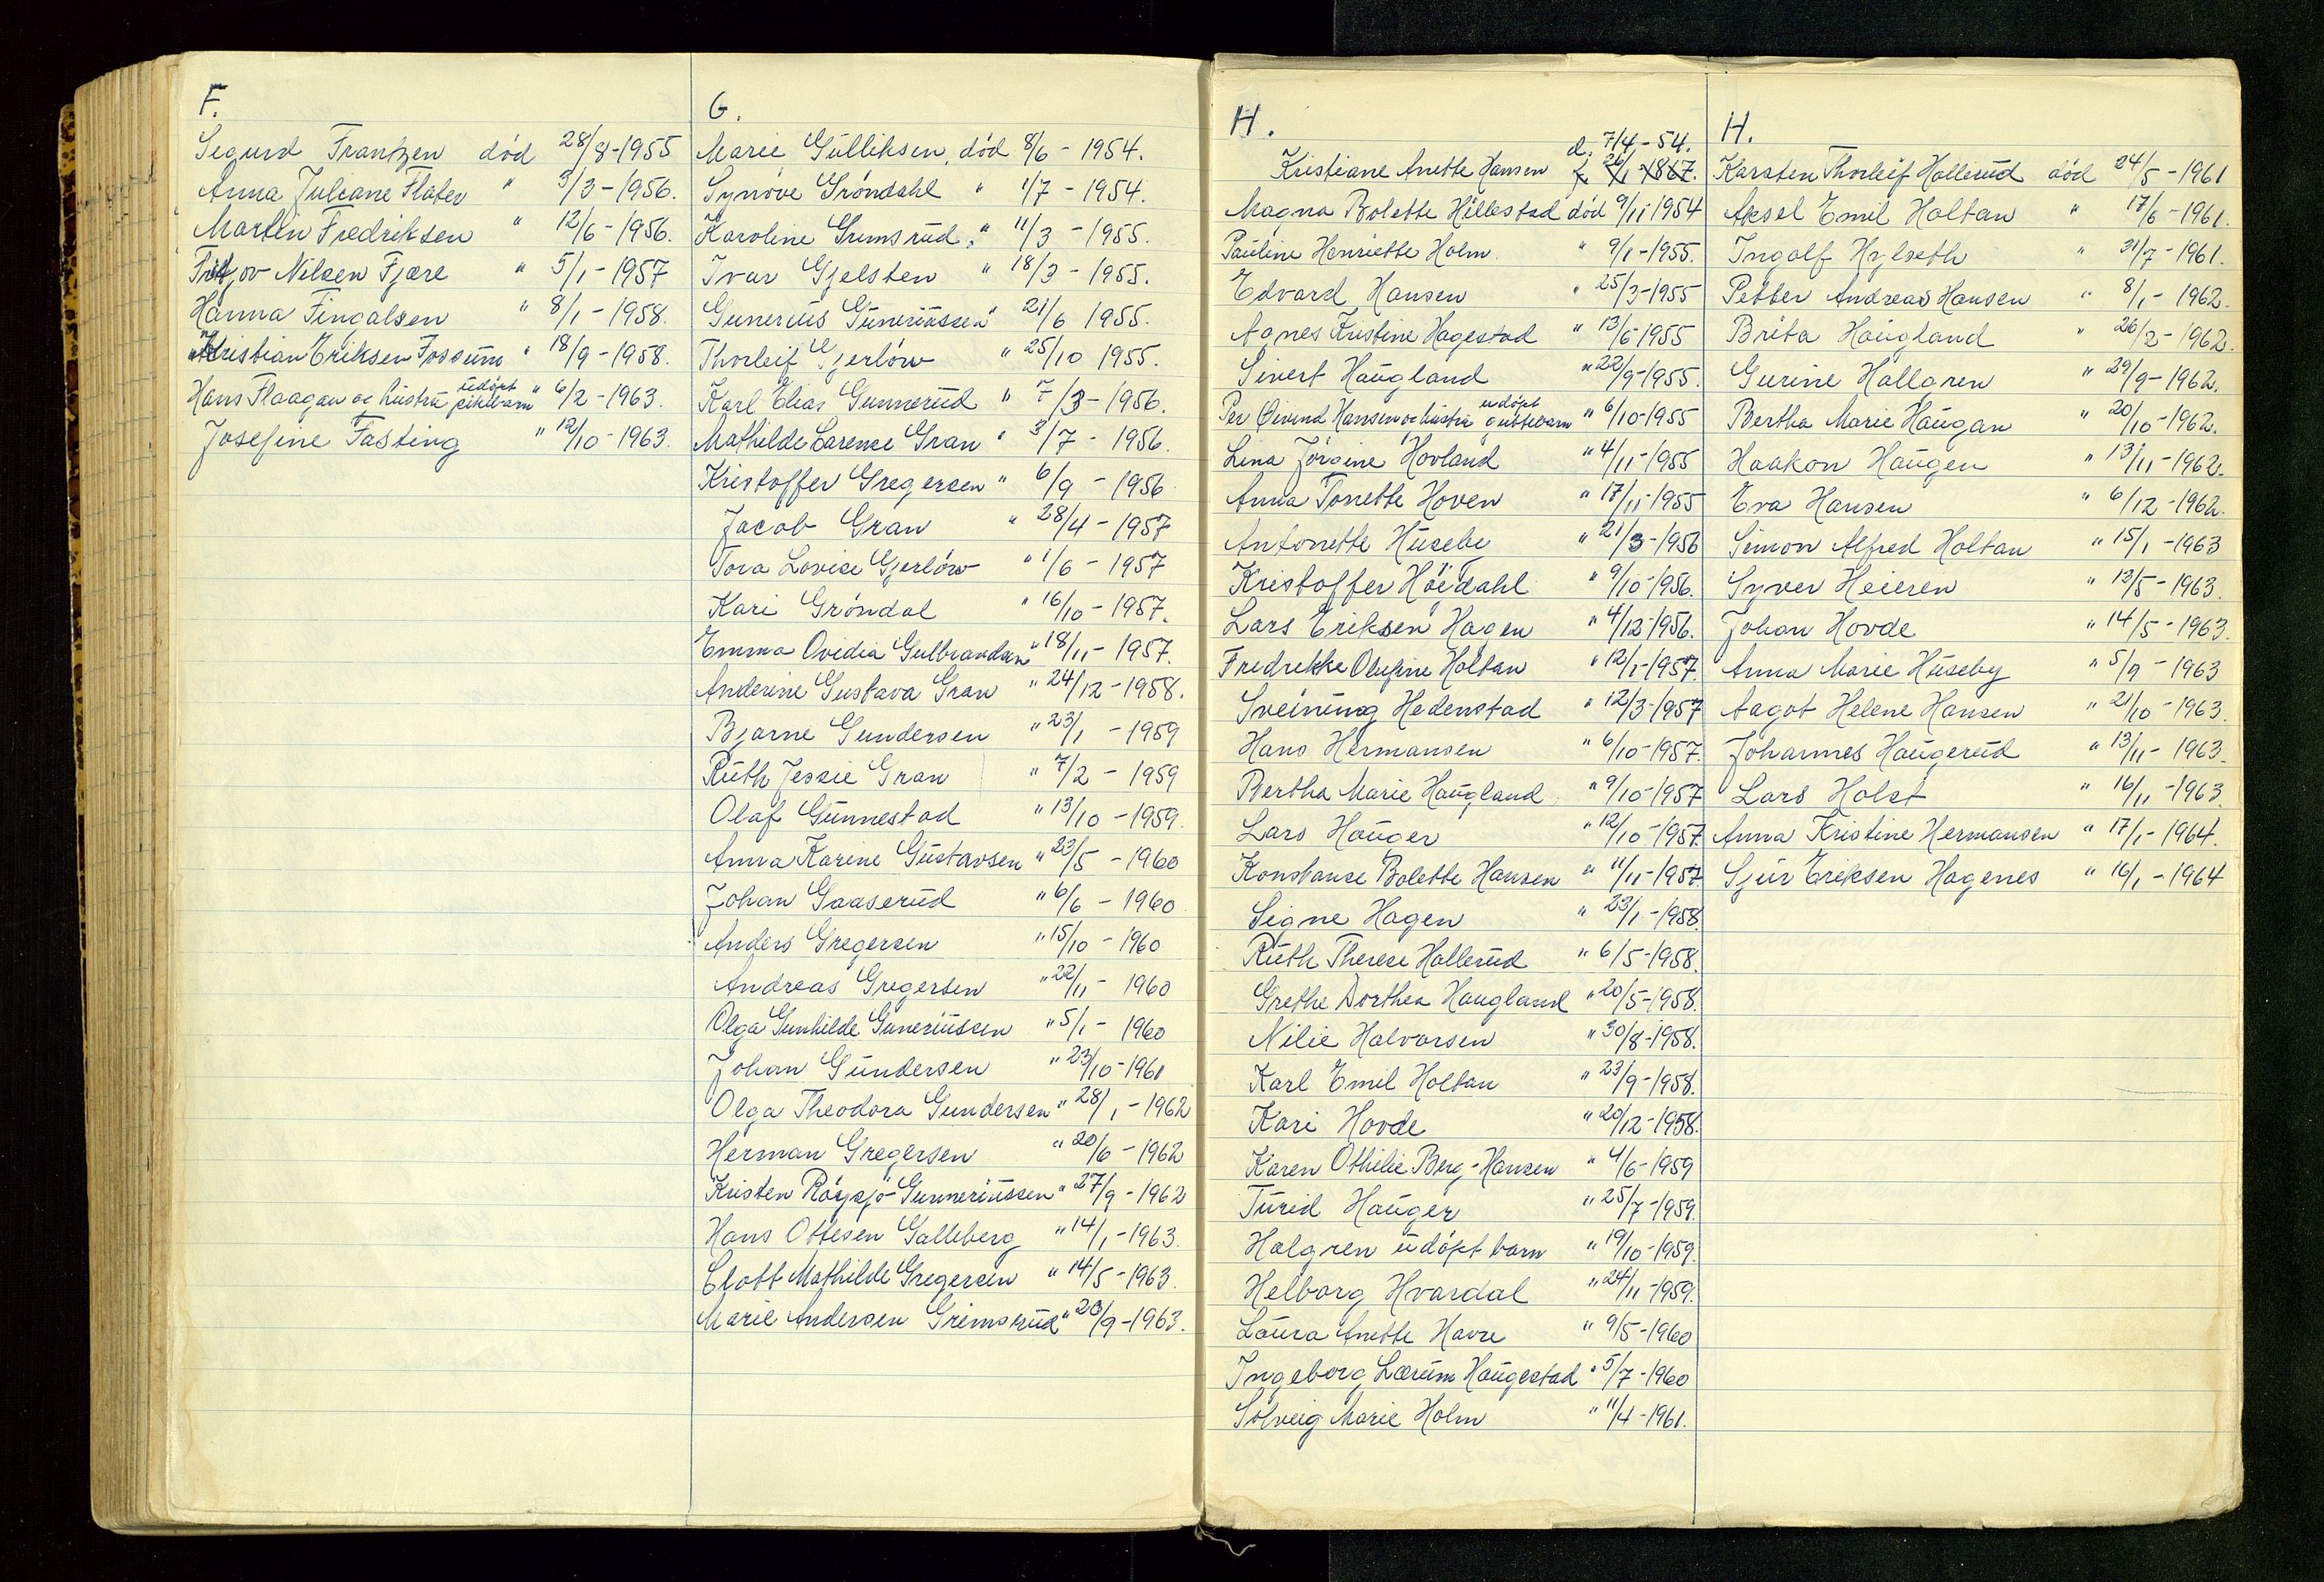 F.
Sigurd Frantzen død 28/8-1955
Anna Juliane Flater " 3/3-1956.
Martin Fredriksen " 12/6-1956.
Fritjov Nilsen Fjære " 5/1-1957
Hanna Fingalsen " 8/1-1958.
Kristian Eriksen Fossum " 18/9-1958.
Hans Flaagan og hustru udøpt pikebarn " 6/2-1963.
Josefine Fasting " 12/10-1963.
G.
Marie Gulliksen, død 8/6-1954.
Synøve Grøndahl " 1/7-1954.
Karoline Grimsrud, " 11/3-1955.
Ivar Gjelsten " 18/3-1955.
Gunerius Guneriussen " 21/6 1955.
Thorleif Gjerløw " 25/10 1955.
Karl Elias Gunnerud " 7/3-1956.
Mathilde Larense Gran " 3/7-1956.
Kristoffer Gregersen " 6/9-1956
Jacob Gran " 28/4-1957
Tora Lovise Gjerløw " 1/6-1957
Kari Grøndal " 16/10-1957.
Emma Ovidia Gulbrandsen " 18/11-1957.
Anderine Gustava Gran " 24/12-1958.
Bjarne Gundersen " 23/1-1959
Ruth Jessie Gran " 7/2-1959
Olaf Gunnestad " 13/10-1959.
Anna Karine Gustavsen " 23/5-1960
Johan Gaaserud " 6/6-1960
Anders Gregersen " 15/10-1960
Andreas Gregersen " 22/11-1960
Olga Gunhilde Guneriussen " 5/1-1960
Johan Gundersen " 23/10-1961
Olga Theodora Gundersen " 28/1-1962
Herman Gregersen " 20/6-1962
Kristen Røysjø-Gunneriussen " 27/9-1962
Hans Ottesen Galleberg " 14/1-1963.
Mathilde Gregersen " 14/5-1963.
Marie Andersen Grimsrud " 20/9-1963.
H.
d. 7/4-54.
Kristiane Anette Hansen f. 26/1-1867.
Magna Bolette Hillestad død 9/11 1954
Pauline Henriette Holm. " 9/1-1955.
Edvard Hansen " 25/3-1955
Agnes Kristine Hagestad " 13/6 1955
Sivert Haugland " 22/9-1955.
Per Øivind Hansen og hustru udøpt guttebarn " 6/10-1955
Lina Jørgine Hovland " 4/11-1955
Anna Tonette Hoven " 17/11-1955
Antonette Huseby " 21/3-1956
Kristoffer Høidahl " 9/10-1956.
Lars Eriksen Hagen " 4/12-1956.
Fredrikke Olufine Holtan " 12/1-1957.
Sveinung Hedenstad " 12/3-1957
Hans Hermansen " 6/10-1957.
Bertha Marie Haugland " 9/10-1957
Lars Hauger " 12/10-1957.
Konstanse Bolette Hansen " 11/11-1957.
Signe Hagen " 23/1-1958.
Ruth Therese Hallerud " 6/5-1958.
Grethe Dorthea Haugland " 20/5-1958.
Nilie Halvorsen " 30/8-1958.
Karl Emil Holtan " 23/9-1958.
Kari Hovde " 20/12-1958.
Karen Othilie Berg-Hansen " 4/6-1959
Turid Hauger " 25/7-1959.
Halgren udøpt barn " 19/10-1959.
Helborg Hvardal " 24/11-1959.
Laura Anette Havre " 9/5-1960
Ingeborg Lærum Haugestad " 5/7-1960
Solveig Marie Holm " 11/4-1961.
H.
Karsten Thorleif Hallerud død 24/5-1961
Aksel Emil Holtan " 17/6-1961.
Ingolf Hylseth " 31/7-1961.
Petter Andreas Hansen " 8/1-1962.
Brita Haugland " 26/2-1962.
Gurine Hallgren " 29/9-1962.
Bertha Marie Haugan " 20/10-1962.
Haakon Haugen " 13/11-1962.
Eva Hansen " 6/12-1962.
Simon Alfred Holtan " 15/1-1963
Syver Heieren " 13/5-1963.
Johan Hovde " 14/5-1963.
Anna Marie Huseby " 5/9-1963
Aagot Helene Hansen " 21/10-1963.
Johannes Haugerud " 13/11-1963.
Lars Holst " 16/11-1963.
Anna Kristine Hermansen " 17/1-1964.
Sjur Eriksen Hagenes " 16/1-1964